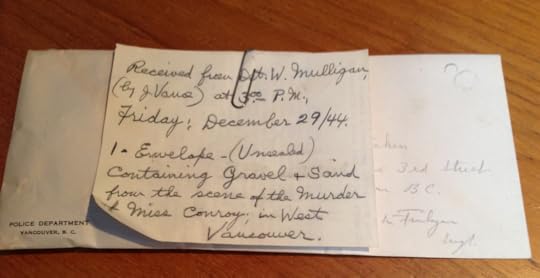 Received from Det. W. Mulligan,
(by J. Vance) at 3:00 P.M.,
Friday, December 29/44.
1 - Envelope - (Unsealed)
Containing Gravel & Sand
from the scene of the Murder
of Miss Conroy, in West
Vancouver.
POLICE DEPARTMENT
VANCOUVER, B. C.
Taken
3rd Street
B.C.